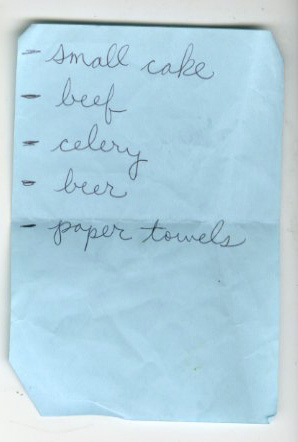 - small cake
- beef
- celery
- beer
- paper towels